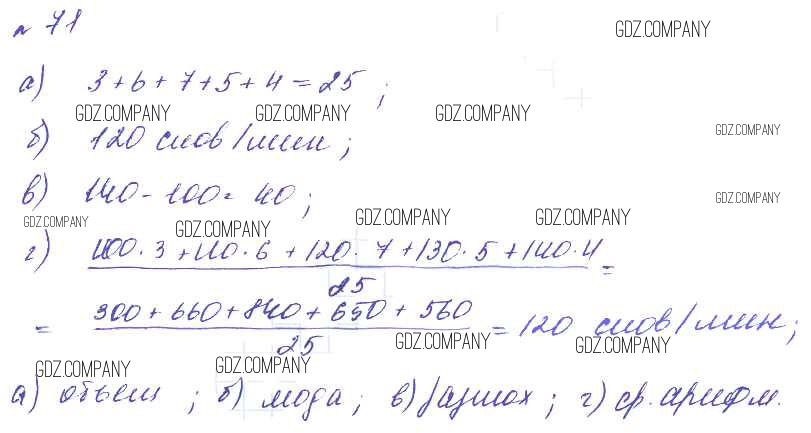 № 71
GDZ.COMPANY
а) 3+6+7+5+4=25;
GDZ.COMPANY GDZ.COMPANY GDZ.COMPANY
GDZ.COMPANY
б) 120 слов/мин;
в) 140-100=40;
GDZ.COMPANY
GDZ.COMPANY GDZ.COMPANY GDZ.COMPANY GDZ.COMPANY
г) 100·3+110·6+120·7+130·5+140·4 =
25
= 300+660+840+650+560 = 120 слов/мин;
25
GDZ.COMPANY GDZ.COMPANY
GDZ.COMPANY GDZ.COMPANY
а) объем; б) мода; в) размах; г) ср. арифм.